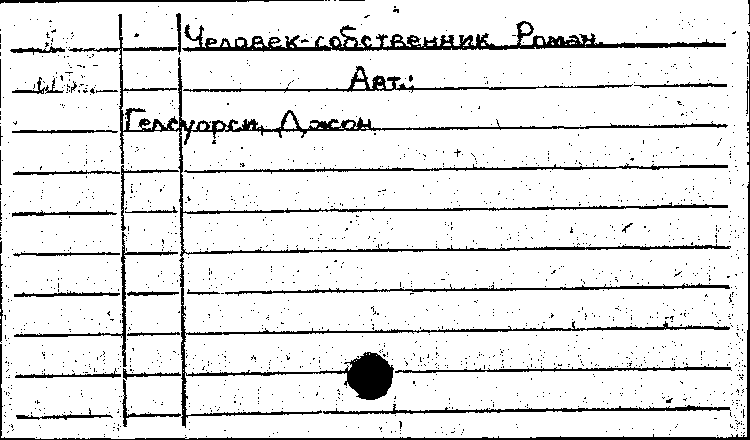 Человек-собственник. Роман.
Авт.:
Гелсуорси, Джон